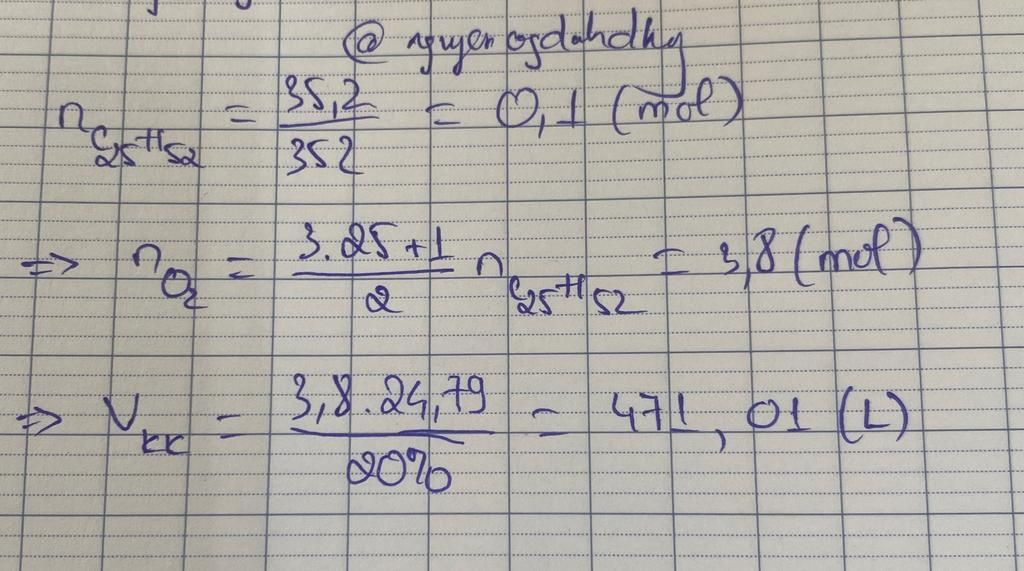 @ nguyenogdahdhy
n_{C_{25}H_{52}} = \frac{35,2}{352} = 0,1 (mol)
=> n_{O_2} = \frac{3.25+1}{2} n_{C_{25}H_{52}} = 3,8 (mol)
=> V_{kk} = \frac{3,8.24,79}{20%} = 471,01 (L)